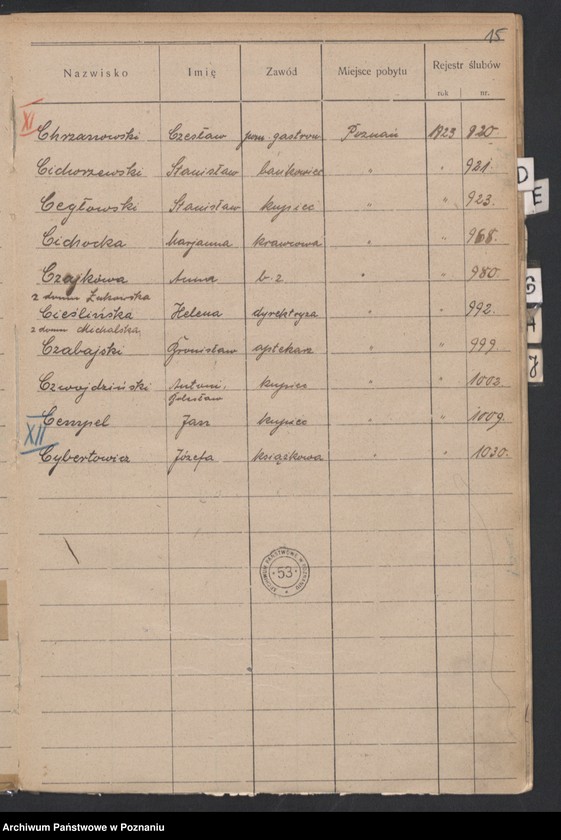 15
Nazwisko Imię Zawód Miejsce pobytu Rejestr ślubów
rok nr.
XI
Chrzanowski Czesław pom. gastron Poznań 1923 920
Cichorzewski Stanisław bankowiec " " 921.
Cegłowski Stanisław kupiec " " 923.
Cichocka Marjanna krawcowa " " 968.
Czajkówa Anna b. z " " 980
z domu Żukowska
Cieślińska Helena dyrektryza " " 992.
z domu Michalska
Czabajski Bronisław aptekarz " " 999
Czwojdziński Antoni. kupiec " " 1003.
Zdzisław
Cempel Jan kupiec " " 1009.
XII
Cybertowicz Józefa książkowa " " 1030.
ARCHIWUM PAŃSTWOWE W POZNANIU
53
D
E
G
J
Archiwum Państwowe w Poznaniu